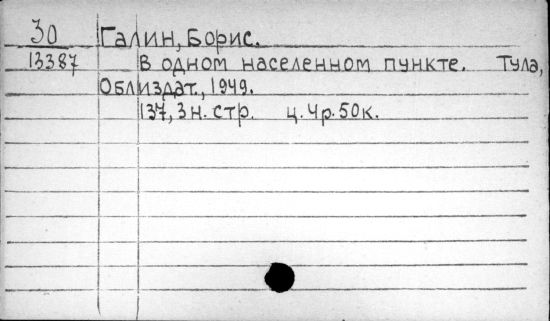 30 Галин, Борис.
13387 В одном населенном пункте. Тула,
Облиздат., 1949.
137, 3 н. стр. ц. 4р. 50к.